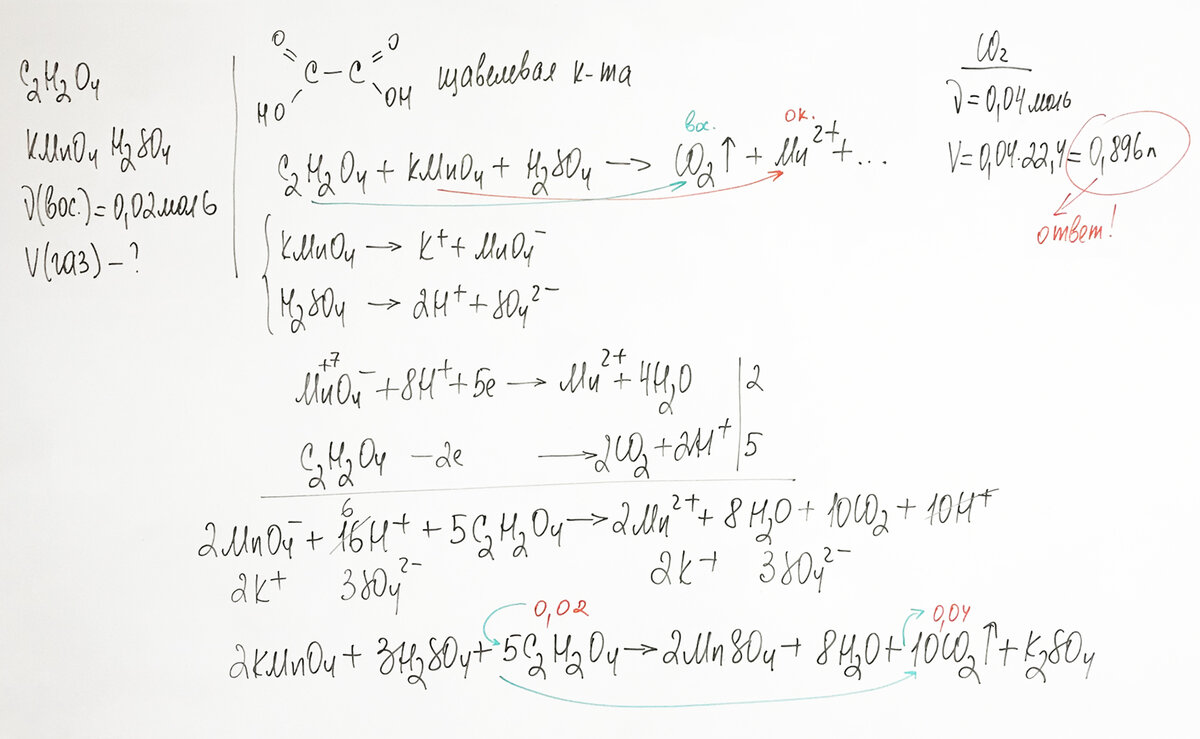 C₂H₂O₄
KMnO₄ H₂SO₄
ν(вос.) = 0,02 моль
V(газ) – ?
O O
C – C
HO OH
щавелевая к-та
вос. ок.
C₂H₂O₄ + KMnO₄ + H₂SO₄ → CO₂↑ + Mn²⁺ + ...
KMnO₄ → K⁺ + MnO₄⁻
H₂SO₄ → 2H⁺ + SO₄²⁻
+7
MnO₄⁻ + 8H⁺ + 5e → Mn²⁺ + 4H₂O | 2
C₂H₂O₄ – 2e → 2CO₂ + 2H⁺ | 5
6
2MnO₄⁻ + 16H⁺ + 5C₂H₂O₄ → 2Mn²⁺ + 8H₂O + 10CO₂ + 10H⁺
2K⁺ 3SO₄²⁻ 2K⁺ 3SO₄²⁻
0,02 0,04
2KMnO₄ + 3H₂SO₄ + 5C₂H₂O₄ → 2MnSO₄ + 8H₂O + 10CO₂↑ + K₂SO₄
CO₂
ν = 0,04 моль
V = 0,04·22,4 = 0,896 л
ответ!